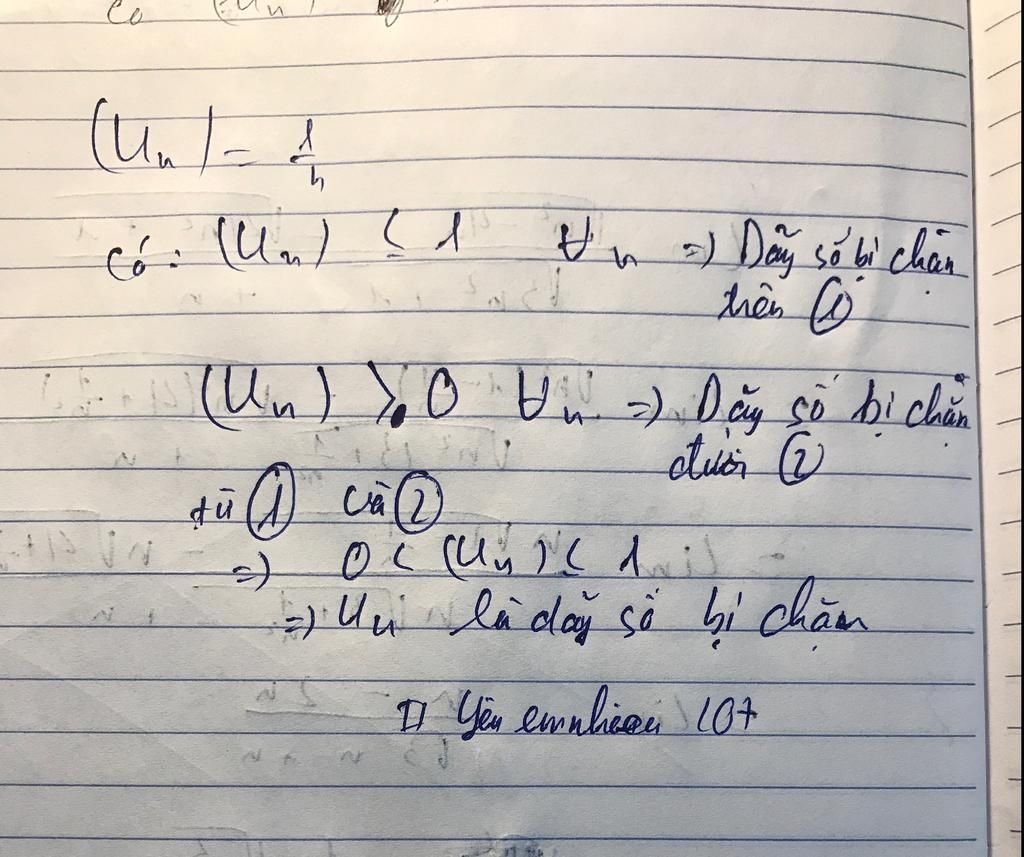 có (Un)
(Un) = 1/n
có: (Un) ≤ 1 ∀n => Dãy số bị chặn
trên ①
(Un) > 0 ∀n => Dãy số bị chặn
dưới ②
từ ① và ②
=> 0 < (Un) ≤ 1
=> Un là dãy số bị chặn
Yêu em nhiều